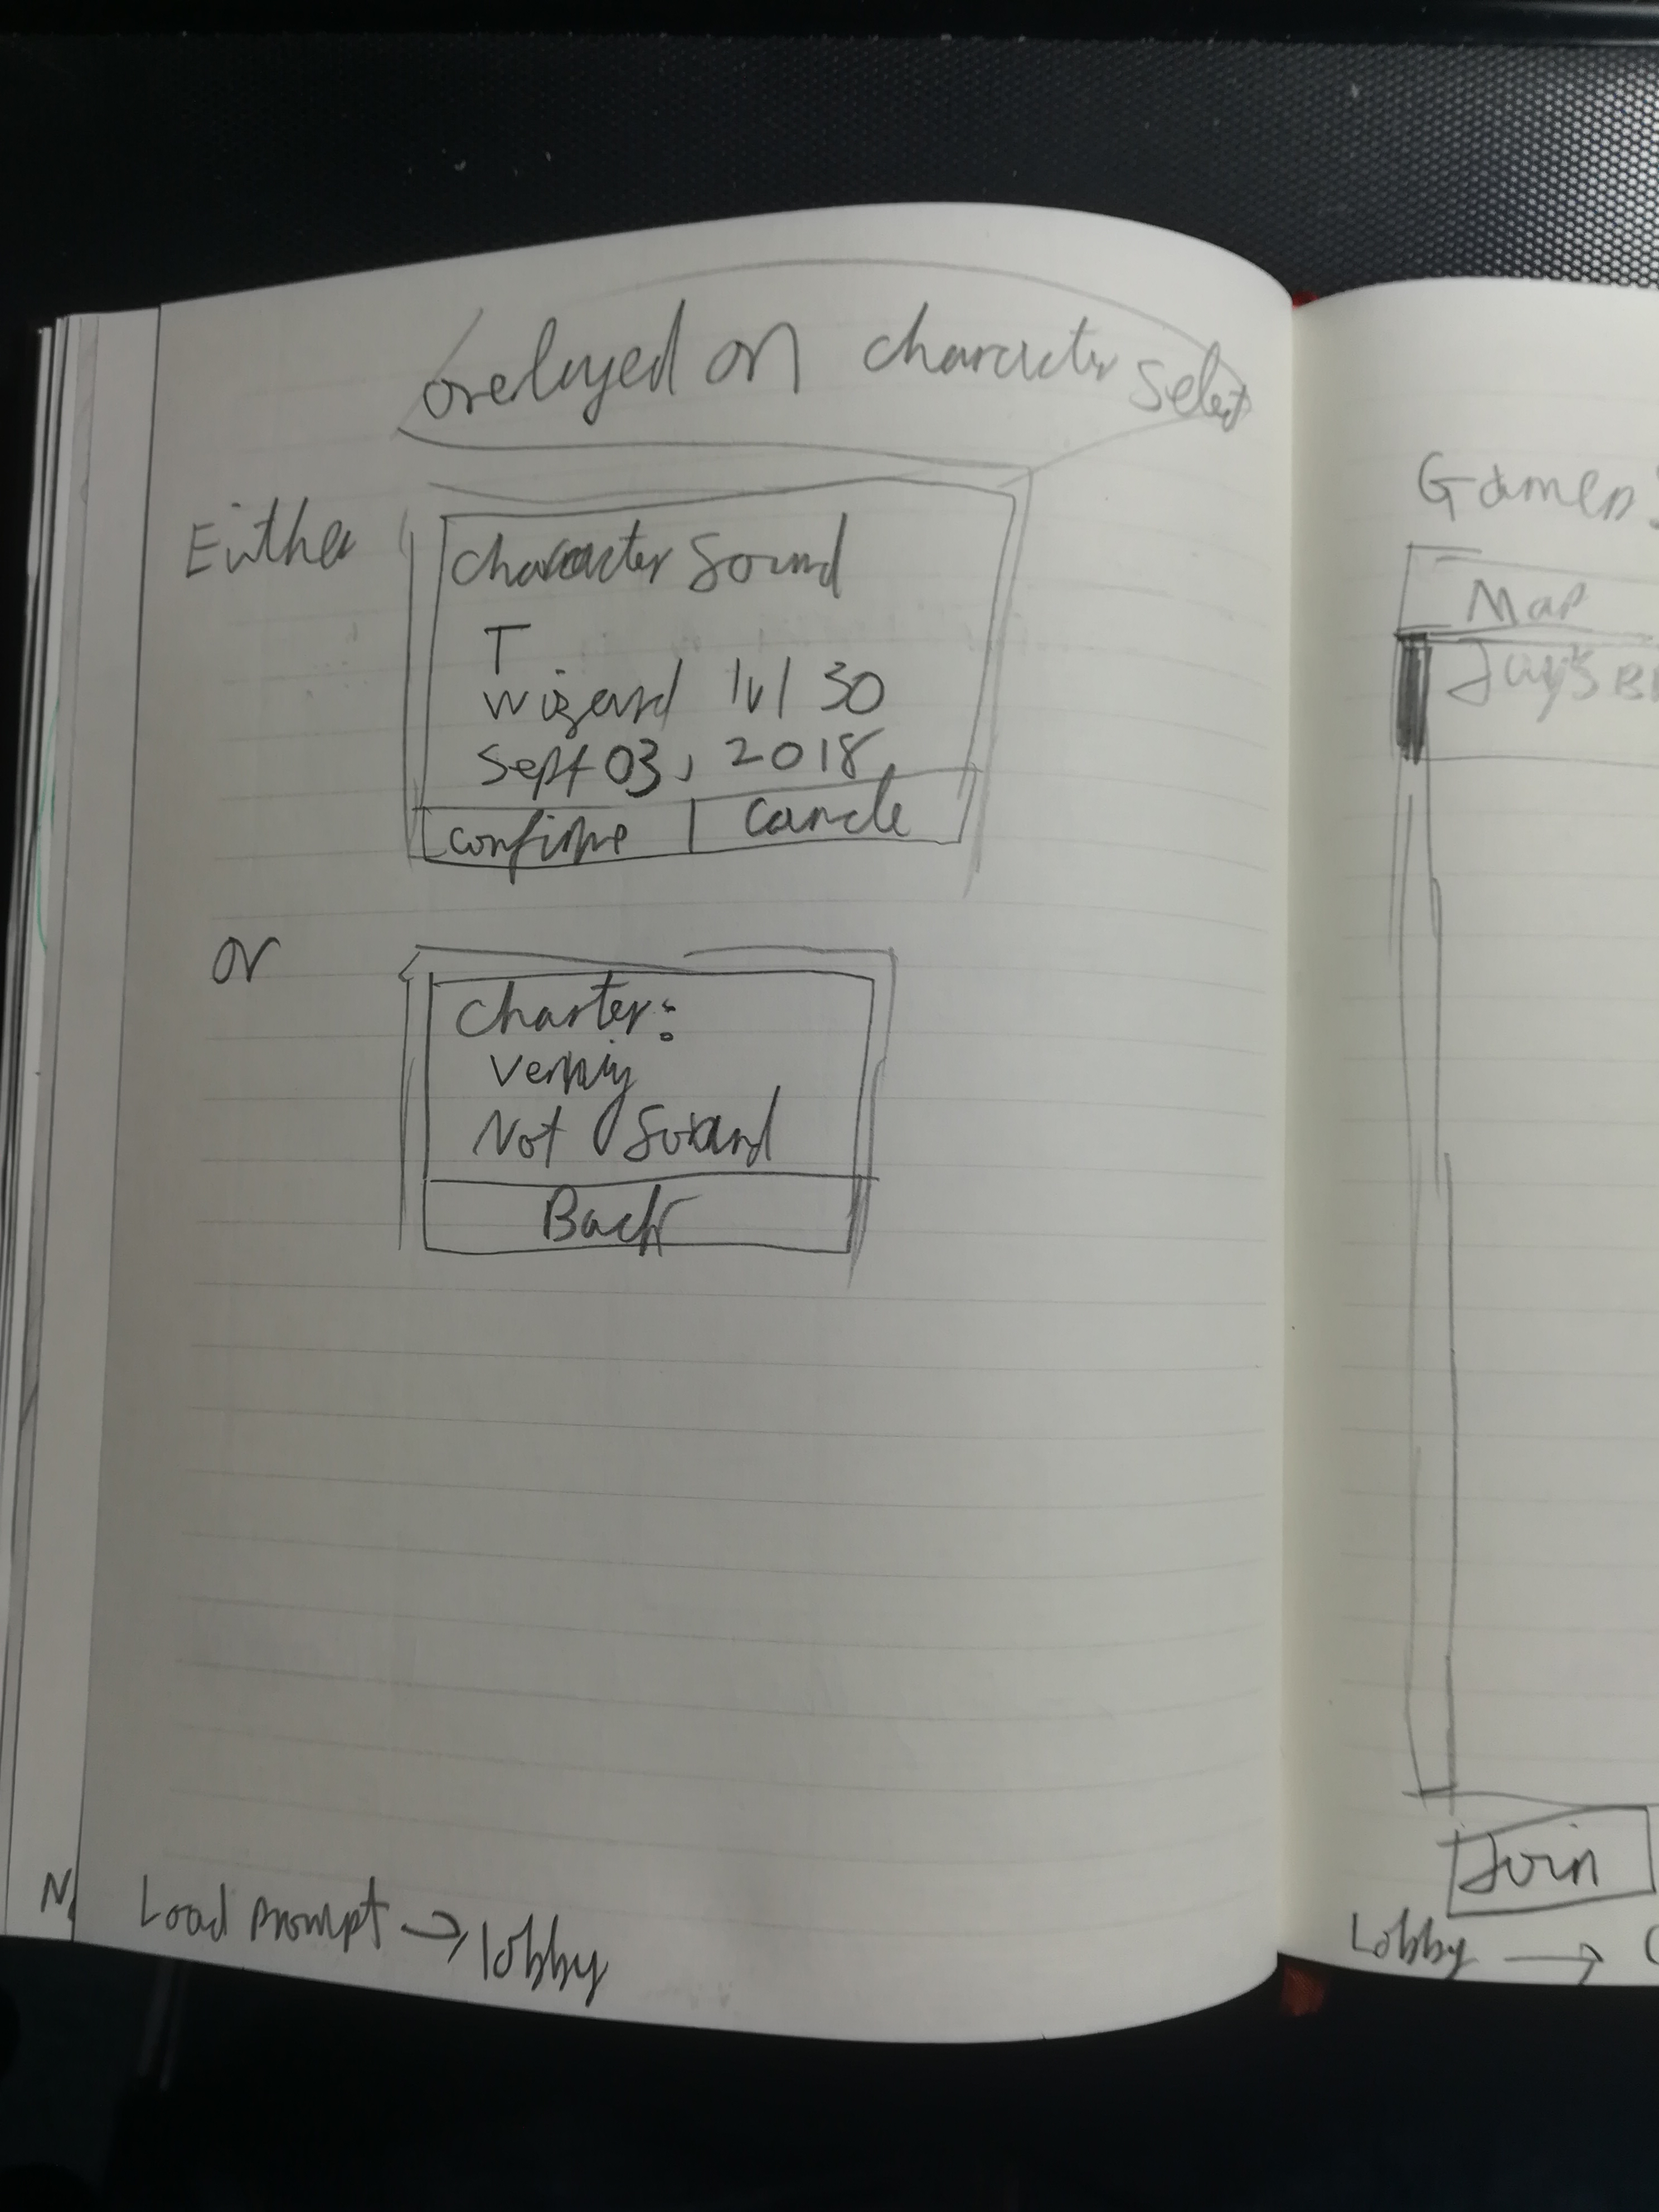 overlayed on character select
Either
Character Sound
T
Wizard lvl 30
Sept 03, 2018
Confirme
Cancle
or
Charter:
Not Sound
Back
N
Load Prompt → lobby
Games
Map
Jay's
Join
Lobby →